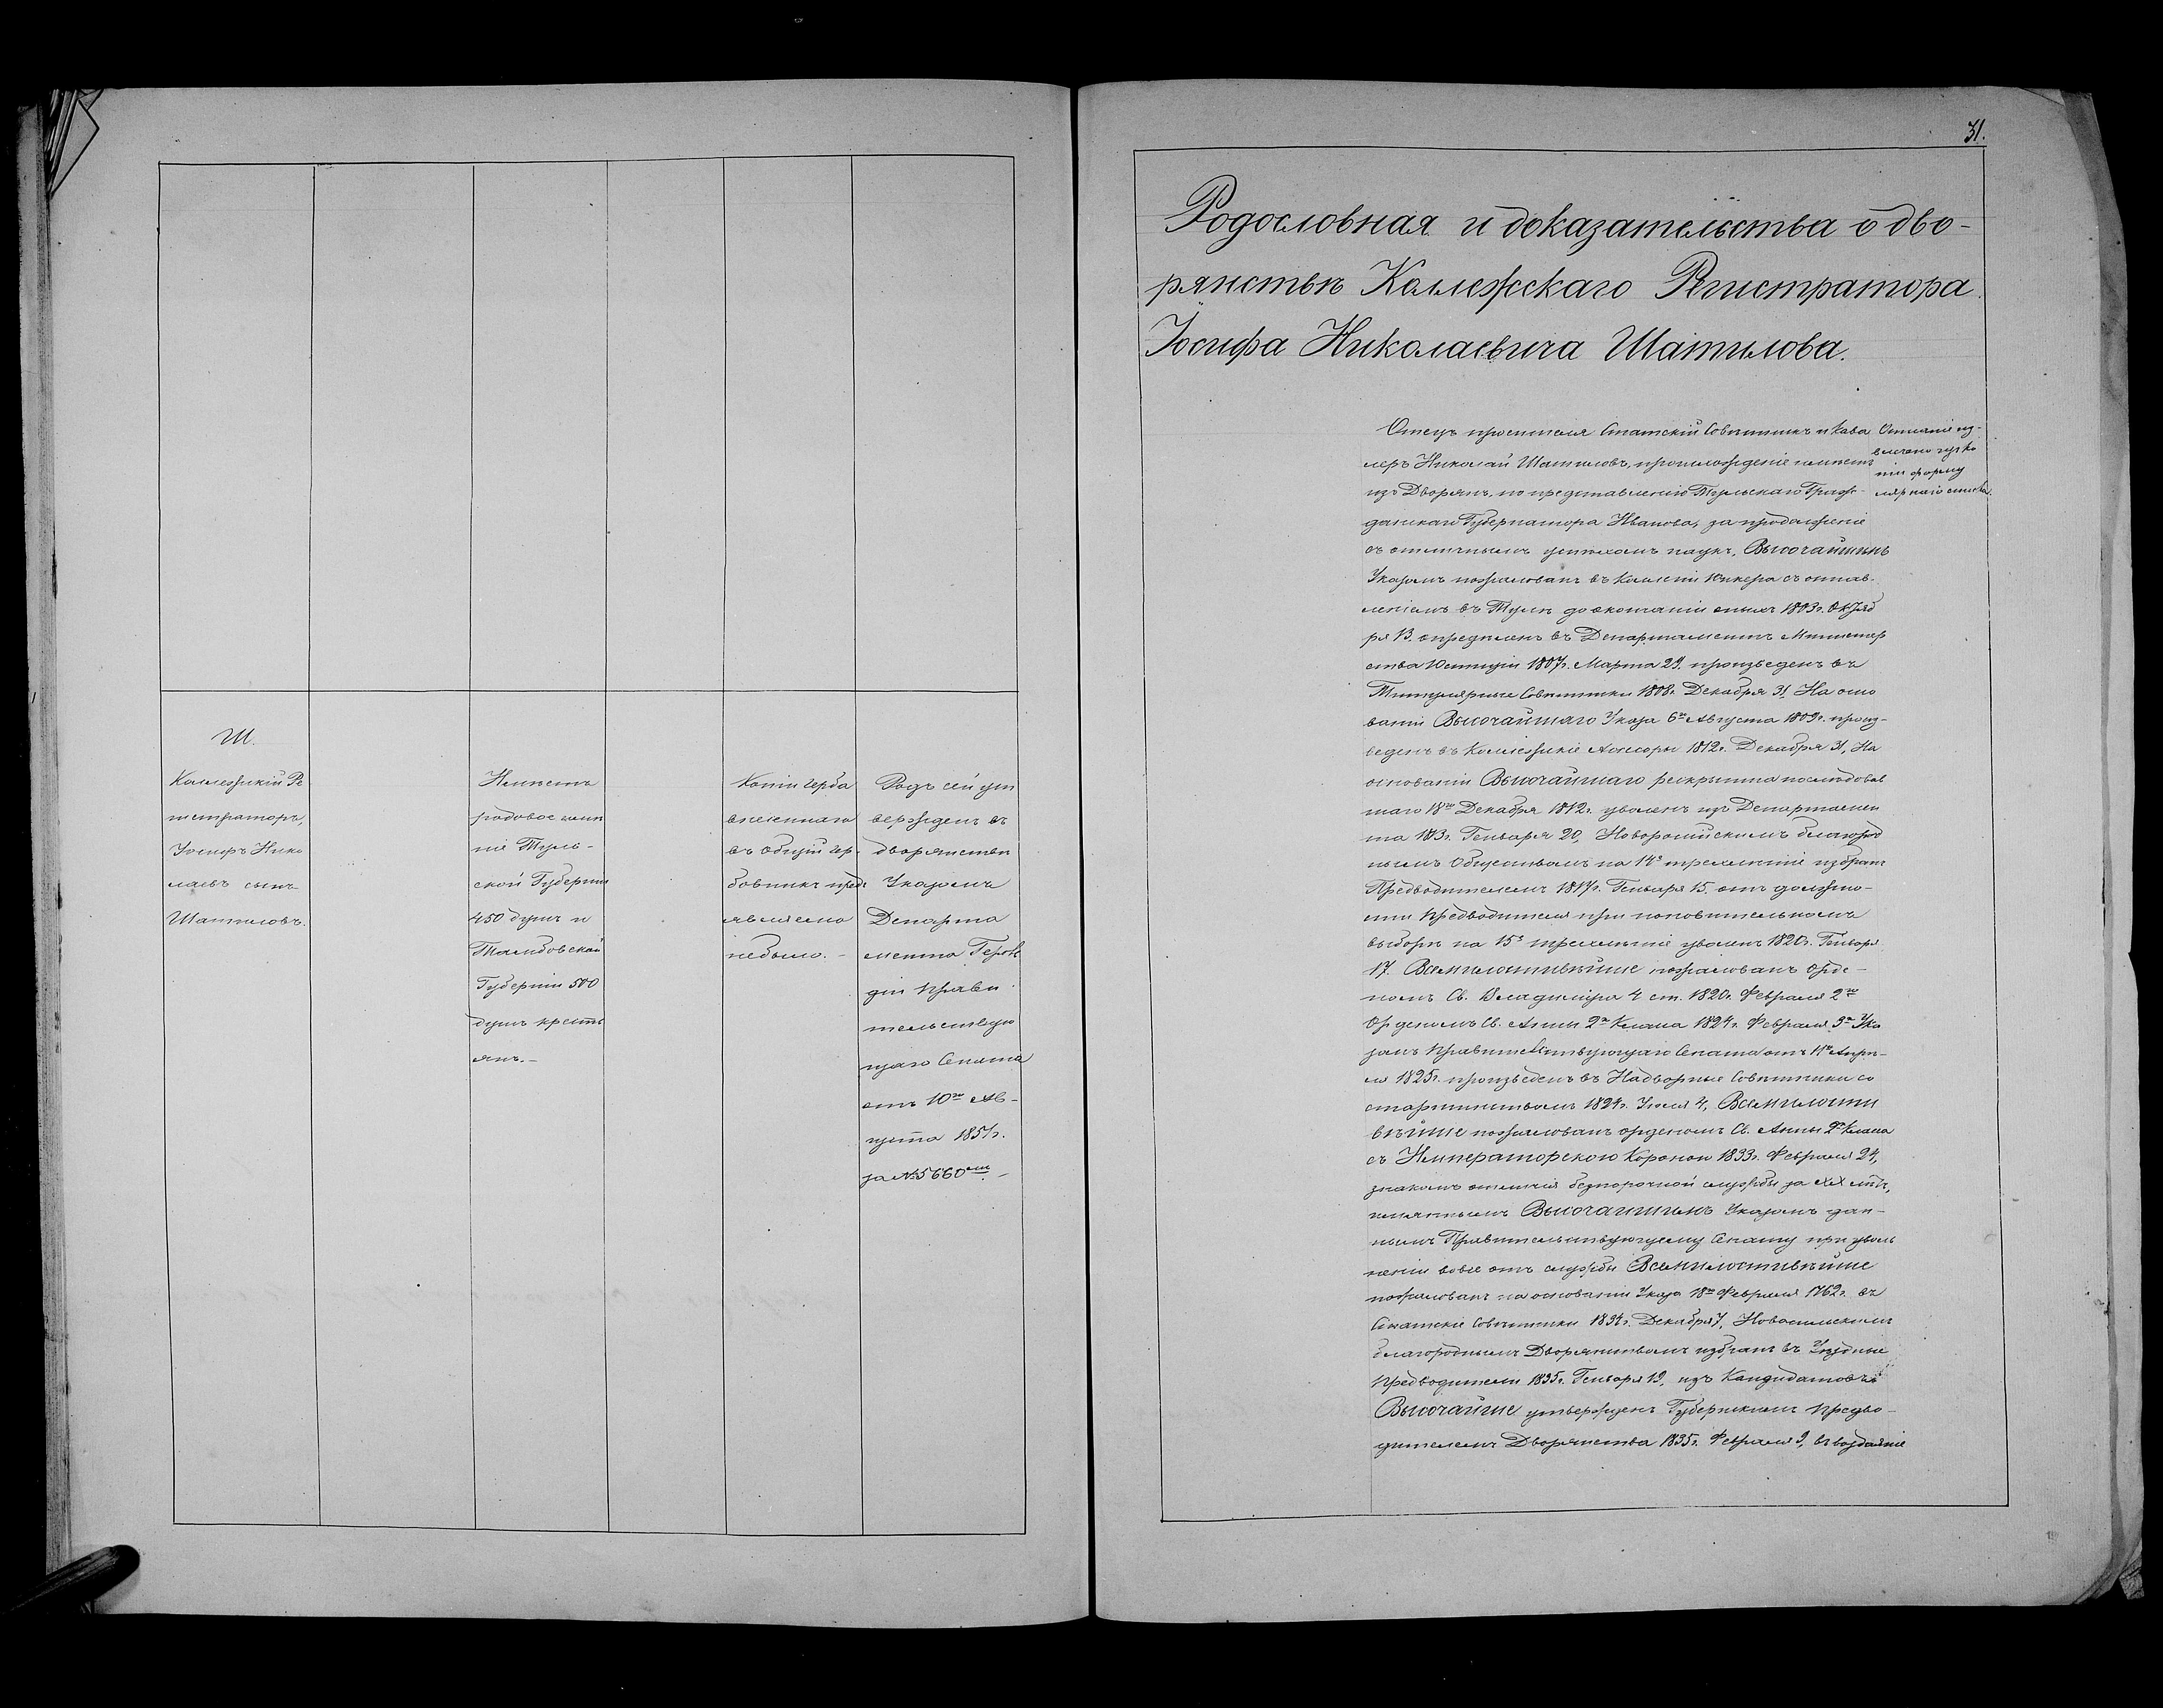 Ш.
Коллежскій Ре
гистраторъ,
Іосифъ Нико
лаевъ сынъ
Шатиловъ.
Имѣетъ
родовое имѣ
ніе Туль-
ской Губерніи
450 душъ и
Тамбовской
Губерніи 500
душъ кресть
янъ.-
Копіи герба
внесеннаго
въ Общій Гер-
бовникъ предъ
явлено
небыло.-
Родъ сей ут
вержденъ въ
дворянствѣ
Указомъ
Департа
мента Героль
діи Прави
тельствую
щаго Сената
отъ 10го Ав-
густа 1851г.
за №5660мъ.-
31.
Родословная и доказательства о дво-
рянствѣ Коллежскаго Регистратора
Іосифа Николаевича Шатилова.
Отецъ просителя Статскій Совѣтникъ и Кава
леръ Николай Шатиловъ, происхожденіе имѣетъ
изъ Дворянъ, по представленію Тульскаго Граж-
данскаго Губернатора Иванова, за продолженіе
съ отличнымъ успѣхомъ наукъ, Высочайшимъ
Указомъ пожалованъ въ Коллегіи Юнкера съ остав-
леніемъ въ Тулѣ до окончанія оныхъ 1803г. Октяб
ря 13. опредѣленъ въ Департаментъ Министер
ства Юстиціи 1807г. Марта 29. произведенъ въ
Титулярные Совѣтники 1808г. Декабря 31, На осно
ваніи Высочайшаго Указа 6го Августа 1809г. произ-
веденъ въ Коллежскіе Асессоры 1812г. Декабря 31, На
основаніи Высочайшаго рескрипта послѣдовав
шаго 18го Декабря 1812г. уволенъ изъ Департамен
та 1813г. Генваря 20, Новоросійскимъ благород
нымъ Обществомъ на 14е трехлѣтіе избранъ
Предводителемъ 1817г. Генваря 15, отъ должно-
сти Предводителя при
выборѣ на 15е трехлѣтіе уволенъ 1820г. Генваря
17. Всемилостивѣйше пожалованъ Орде-
номъ Св. Владиміра 4 ст. 1820г. Февраля 2го
Орденомъ Св. Анны 2го Класса 1824г. Февраля 3го Ука
зомъ Правительствующаго Сената отъ 11го Апрѣ-
ля 1825г. произведенъ въ Надворные Совѣтники со
старшинствомъ 1824г. Іюля 4, Всемилости
вѣйше пожалованъ орденомъ Св. Анны 2го Класса
съ Императорскою Короною 1833г. Февраля 24,
знакомъ отличія безпорочной службы за XX лѣтъ,
имяннымъ Высочайшимъ Указомъ дан-
нымъ Правительствующему Сенату при уволь
неніи вовсе отъ службы Всемилостивѣйше
пожалованъ на основаніи Указа 18го Февраля 1762г. въ
Статскіе Совѣтники 1834г. Декабря 7, Новосильскимъ
благороднымъ Дворянствомъ избранъ въ Уѣздные
Предводители 1835г. Генваря 19, изъ Кандидатовъ
Высочайше утвержденъ Губернскимъ Предво-
дителемъ Дворянства 1835г. Февраля 9, въ воздаяніе
Описаніе из-
влечено изъ ко
піи форму
лярнаго списка.